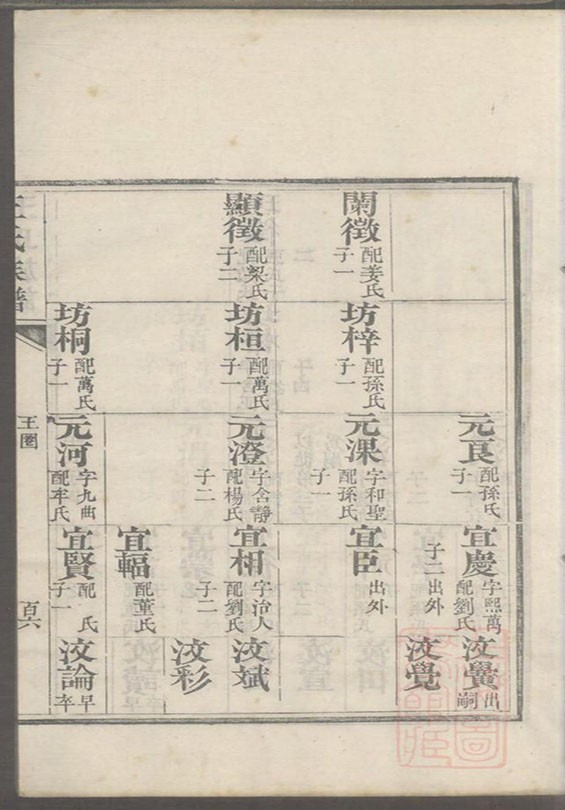 闌徵
配姜氏
子一
顯徵
配梁氏
子二
坊梓
配孫氏
子一
坊桓
配萬氏
子一
坊桐
配萬氏
子一
元良
配孫氏
子一
元淉
字和聖
配孫氏
子一
元澄
字含靜
配楊氏
子二
元河
字九曲
配牟氏
宜慶
字熙萬
配劉氏
子二
出外
宜臣
出外
宜相
字治人
配劉氏
子二
宜輻
配董氏
宜賢
配 氏
子一
汶黌
出嗣
汶覺
汶斌
汶彩
汶論
早卒
王氏族譜
王圈
百六